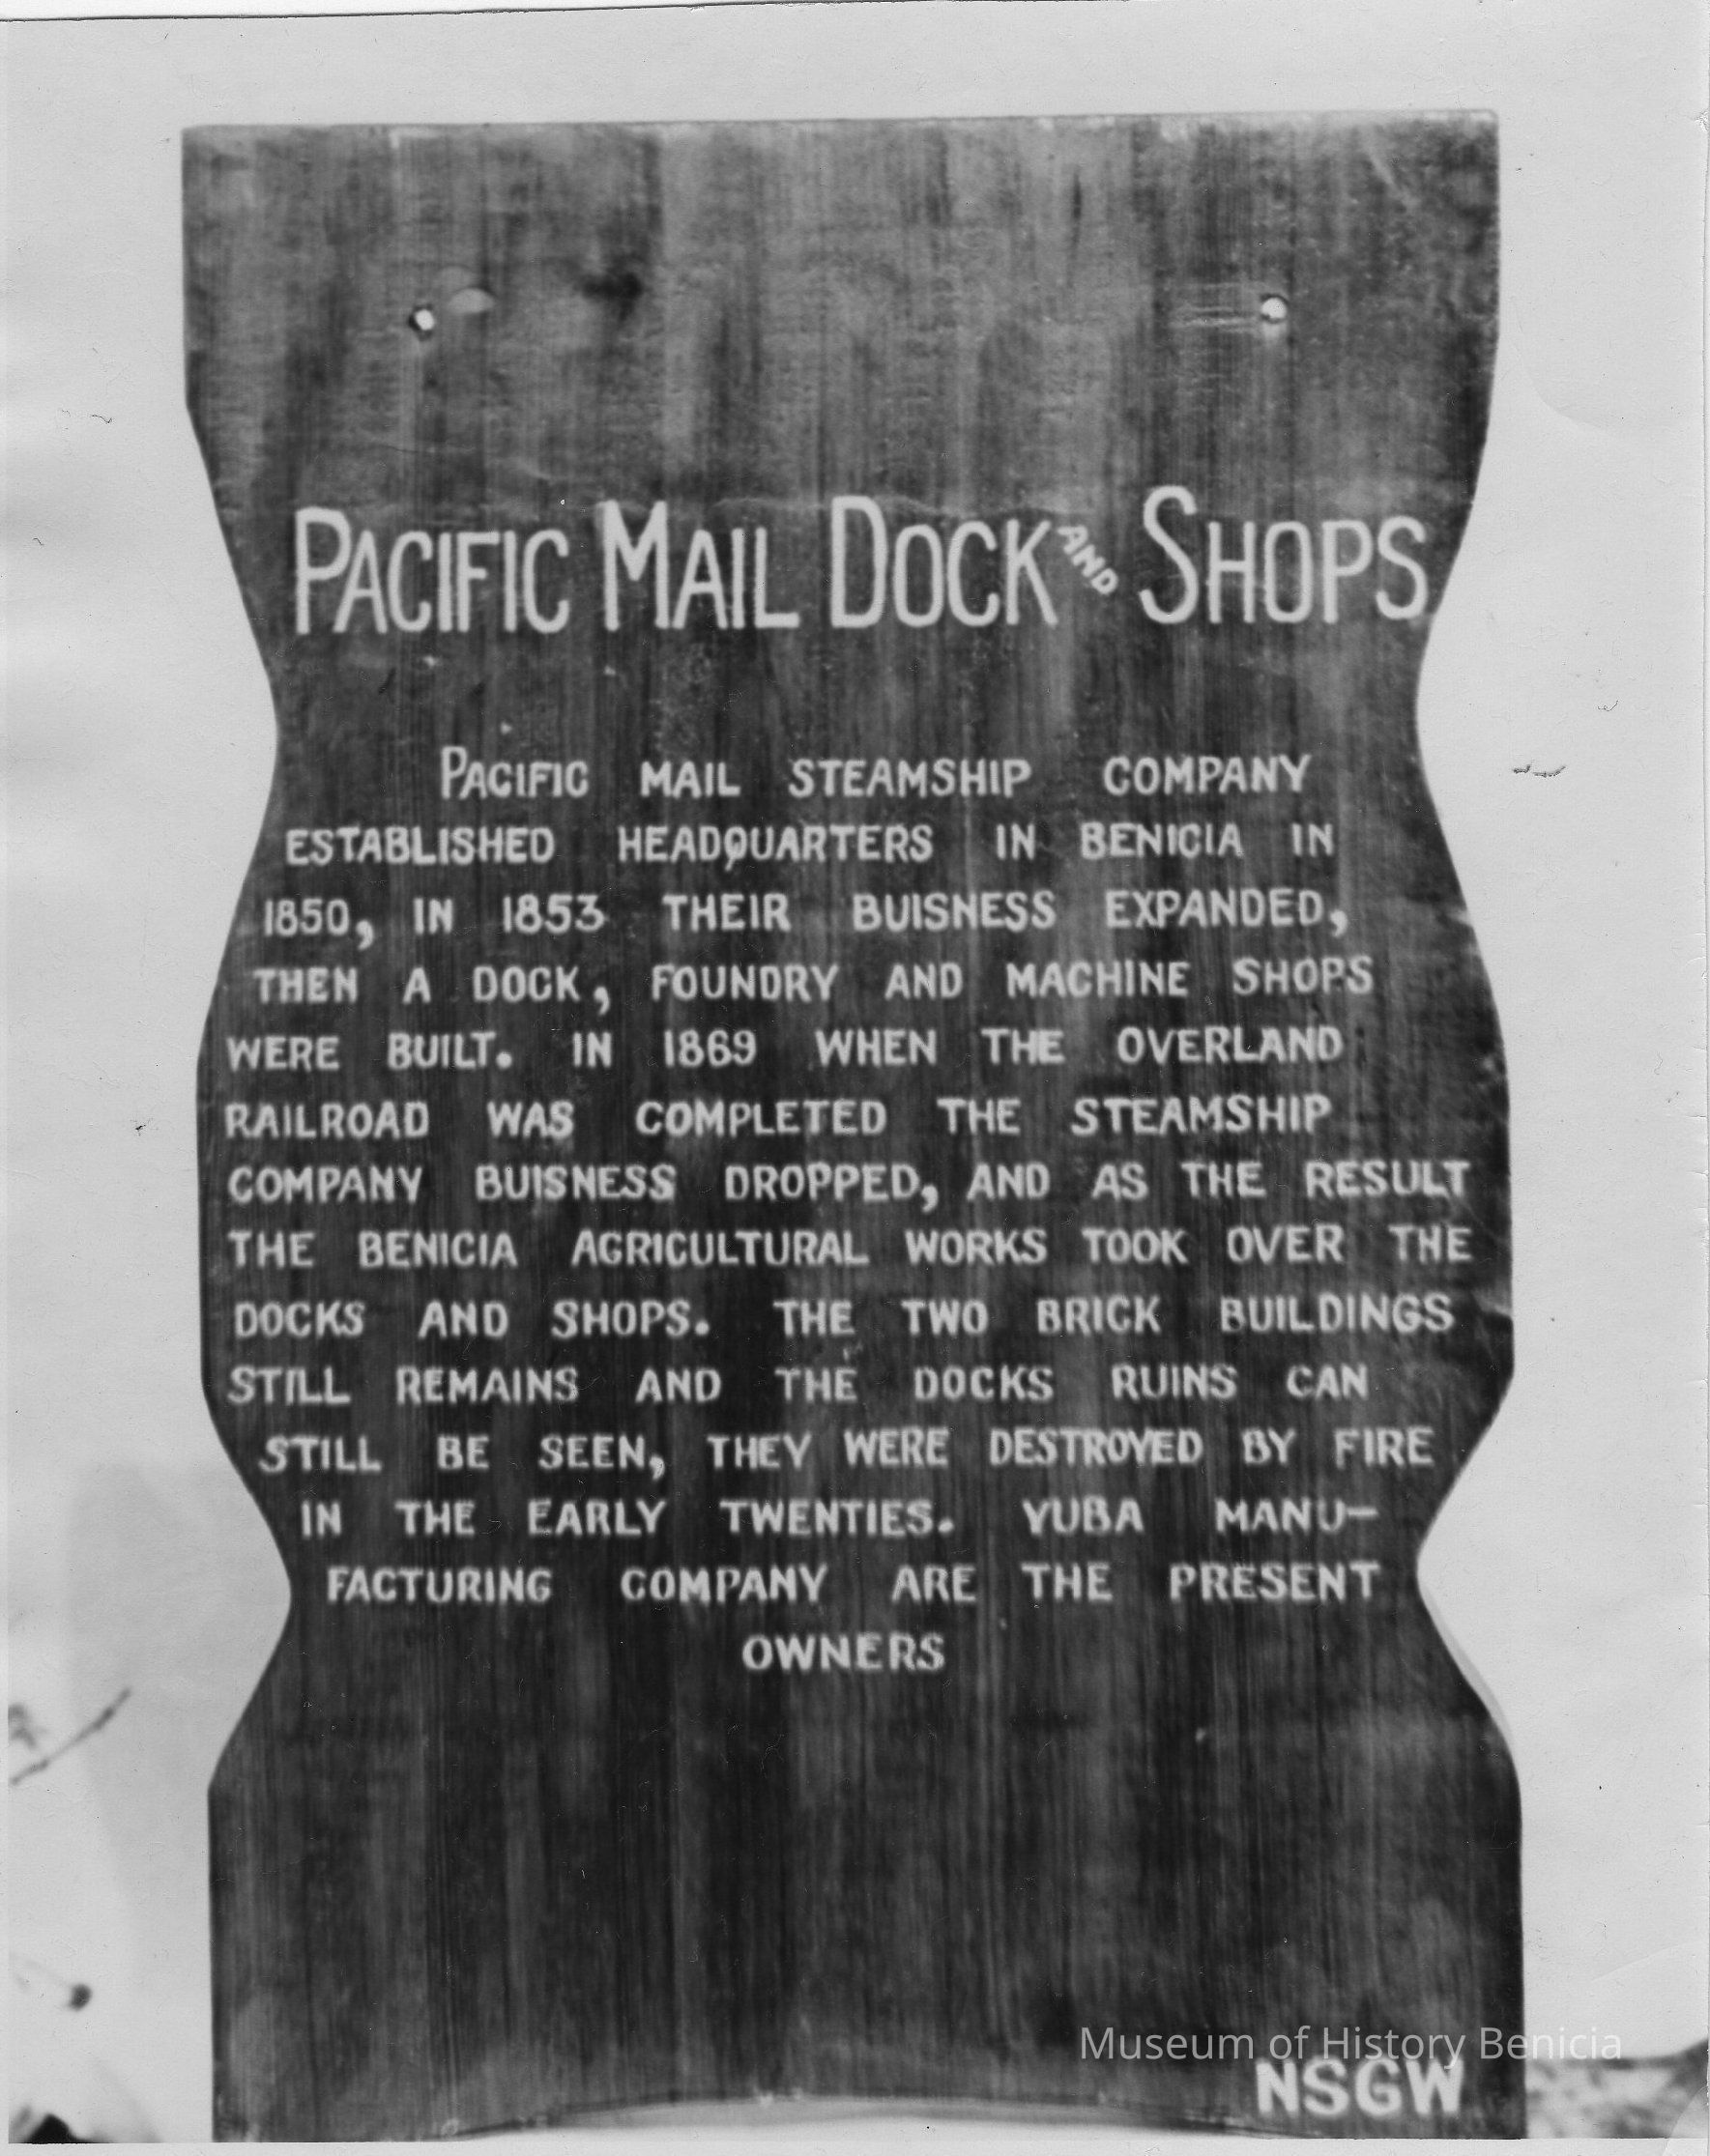 PACIFIC MAIL DOCK AND SHOPS
PACIFIC MAIL STEAMSHIP COMPANY
ESTABLISHED HEADQUARTERS IN BENICIA IN
1850, IN 1853 THEIR BUISNESS EXPANDED,
THEN A DOCK, FOUNDRY AND MACHINE SHOPS
WERE BUILT. IN 1869 WHEN THE OVERLAND
RAILROAD WAS COMPLETED THE STEAMSHIP
COMPANY BUISNESS DROPPED, AND AS THE RESULT
THE BENICIA AGRICULTURAL WORKS TOOK OVER THE
DOCKS AND SHOPS. THE TWO BRICK BUILDINGS
STILL REMAINS AND THE DOCKS RUINS CAN
STILL BE SEEN, THEY WERE DESTROYED BY FIRE
IN THE EARLY TWENTIES. YUBA MANU-
FACTURING COMPANY ARE THE PRESENT
OWNERS
Museum of History Benicia
NSGW